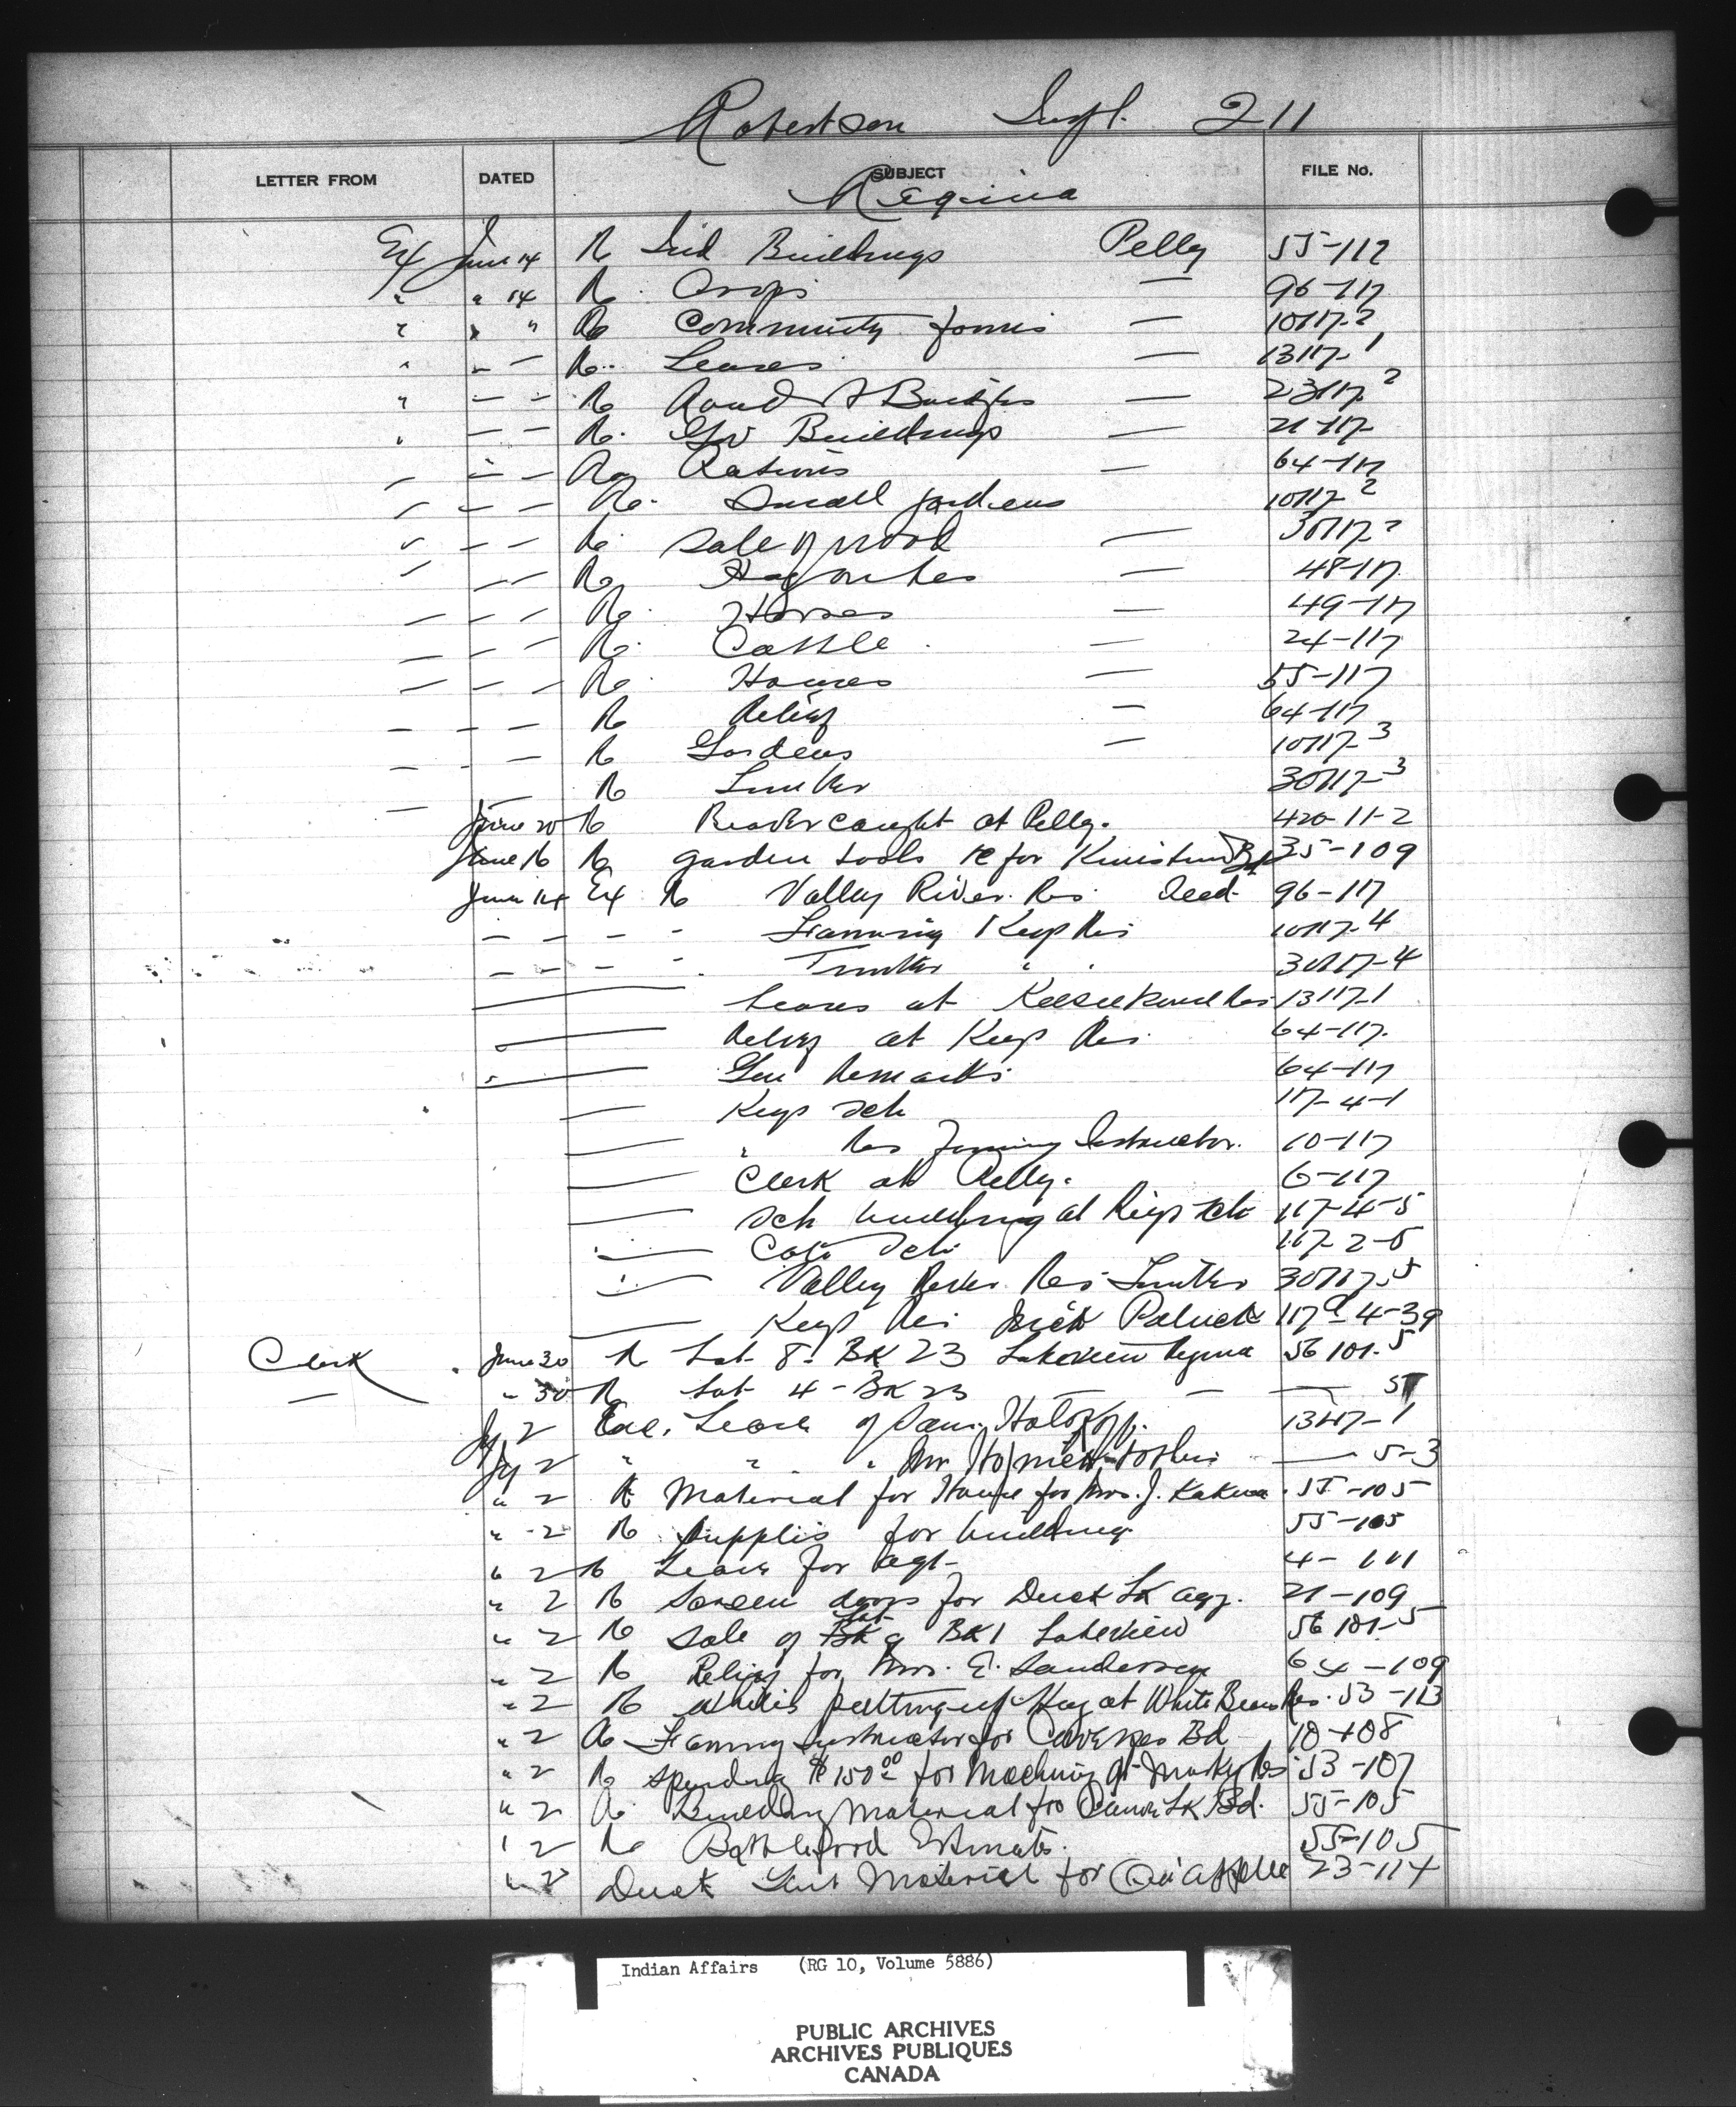 Robertson Supt. 211
LETTER FROM DATED SUBJECT FILE No.
Regina
Ex June 14 R Ind Buildings Pelly 55-117
" " 14 Re Crops — 96-117
" " " Re Community farms — 10117-2
" — — Re Leases — 13117-1
" — — Re Road & Bridges — 23117-2
" — — Re Gov Buildings — 21-117
— — — Re Rations — 64-117
— — — Re Small gardens 10117-2
" — — Re Sale of wood — 30117-2
" — — Re — 48-117
— — — Re Horses — 49-117
— — — Re Cattle — 24-117
— — — Re Houses — 55-117
— — — Re Relief — 64-117
— — — Re Gardens — 10117-3
— — Re Timber 30117-3
June 20 Re Beaver caught at Pelly. 420-11-2
June 16 Re garden tools for Kinistino Bd 35-109
June 14 Ex Re Valley River Res Seed 96-117
— — — - Farming Keys Res 10117-4
— — — - Timber " " 30117-4
— Leases at Keeseekouse Res 13117-1
— Relief at Keys Res 64-117
— Gen Remarks 64-117
— Keys Sch 117-4-1
— " Res Farming Instructor. 10-117
— Clerk at Pelly. 6-117
— Sch building at Keys Sch 117-4-5
— Cote Sch 117-2-5
— Valley River Res Timber 30117-5
— Keys Res 4-39
Clerk June 30 Re Lot 8- BK 23 Lakeview Regina 56 101-5
— " 30 Re Lot 4 - BK 23 — — — 5
Jy 2 Enc. Lease of Sam. 13117-1
Jy 2 " " " Mr. — 5-3
" 2 Re Material for House for Mrs. J. 55-105
" 2 Re Supplies for building 55-105
" 2 Re Leave for agt 4-
" 2 Re Screen doors for Duck Lk agy. 21-109
" 2 Re Sale of Lot 9 BK 1 Lakeview 56 101-5
" 2 Re Relief for Mrs. E. Sanderson 64-109
" 2 Re putting up Hay at White Bears Res. 53-113
" 2 Re Farming Instructor for Bd 10-108
" 2 Re Spending $150.00 for Machinery at Res 53-107
" 2 Re Building Material for Canoe Lk Bd. 55-105
" 2 Re Battleford Estimate. 55-105
" 2 Material for Qu'Appelle 23-114
Indian Affairs (RG 10, Volume 5886)
PUBLIC ARCHIVES
ARCHIVES PUBLIQUES
CANADA